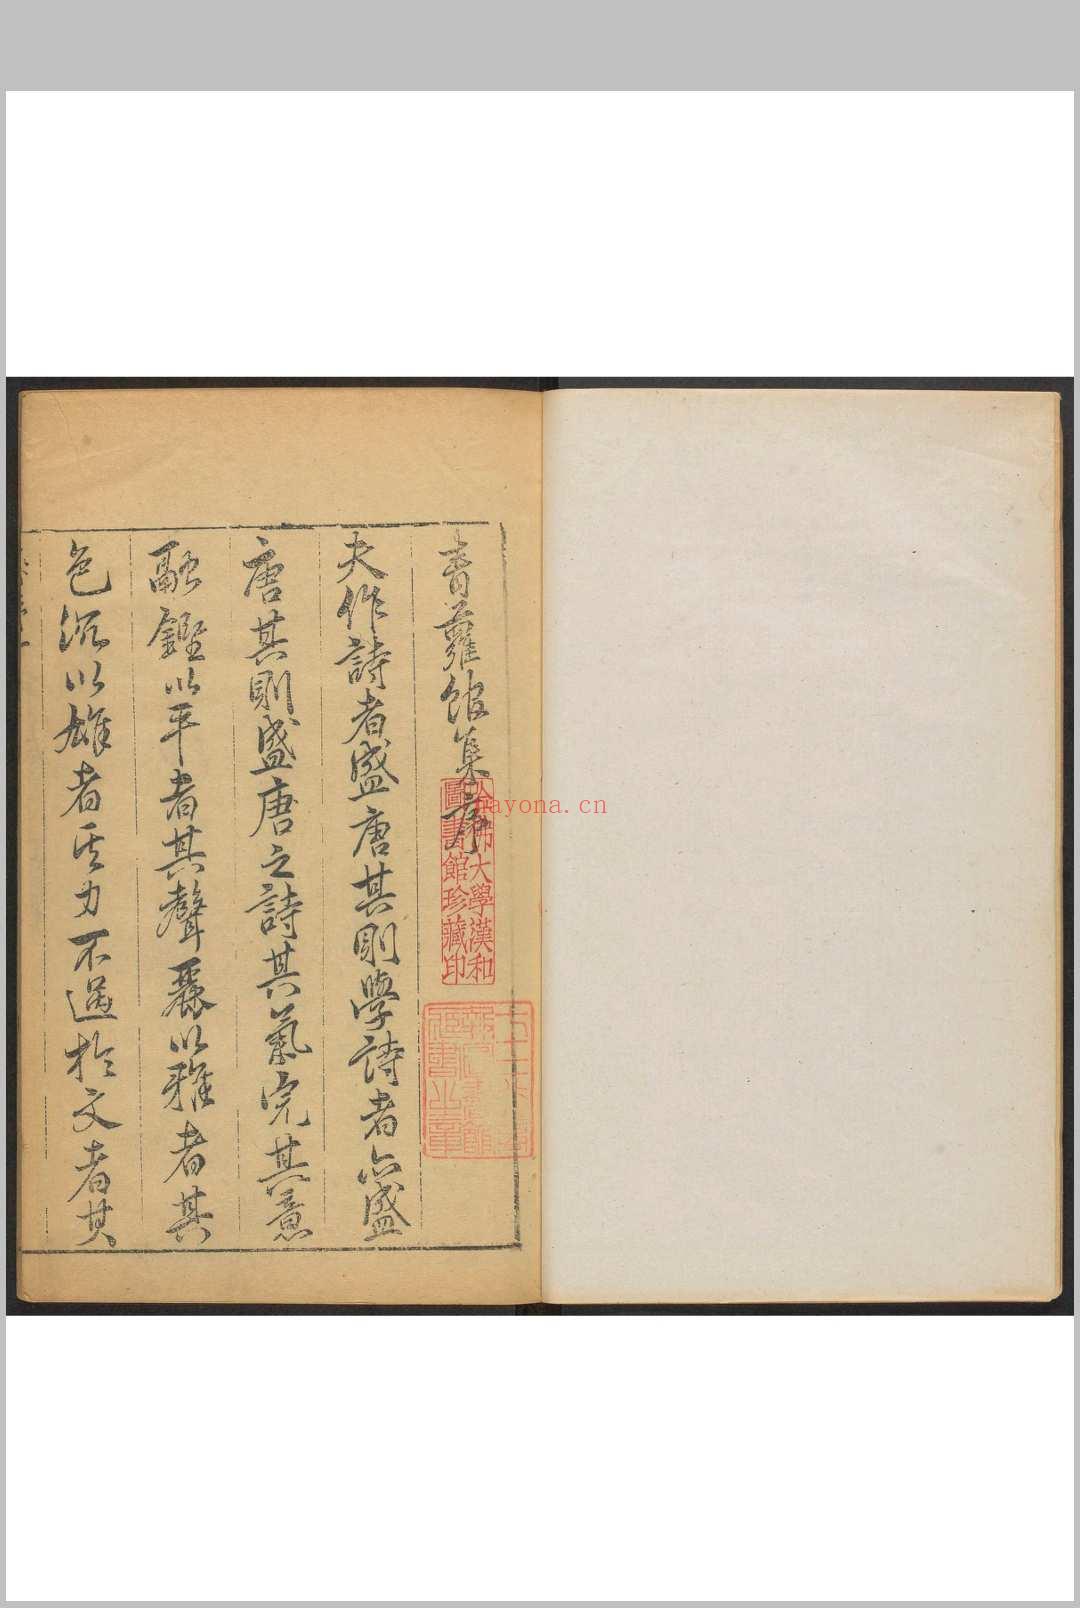 青蘿館集序
夫作詩者盛唐其則學詩者亦盛
唐其則盛唐之詩其氣完其意
融鏗以平者其聲麗以雅者其
色沉以雄者其力不過於文者其
哈佛大學漢和
圖書館珍藏印
nayona.cn